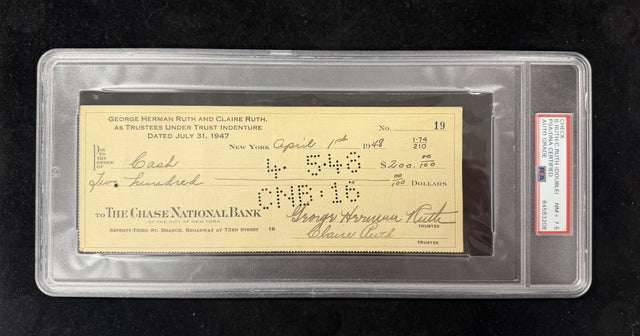 GEORGE HERMAN RUTH AND CLAIRE RUTH,
AS TRUSTEES UNDER TRUST INDENTURE
DATED JULY 31, 1947
No. 19
NEW YORK April 1st 1948
1-74
210
PAY TO THE ORDER OF Cash $200.00/100
Two hundred 00/100 DOLLARS
4·5·48
CMB·16
TO THE CHASE NATIONAL BANK
OF THE CITY OF NEW YORK
SEVENTY-THIRD ST. BRANCH, BROADWAY AT 73RD STREET 16
George Herman Ruth
TRUSTEE
Claire Ruth
TRUSTEE
CHECK
B.RUTH/C.RUTH (DOUBLE) NM+ 7.5
PSA/DNA CERTIFIED
AUTO GRADE
84583208